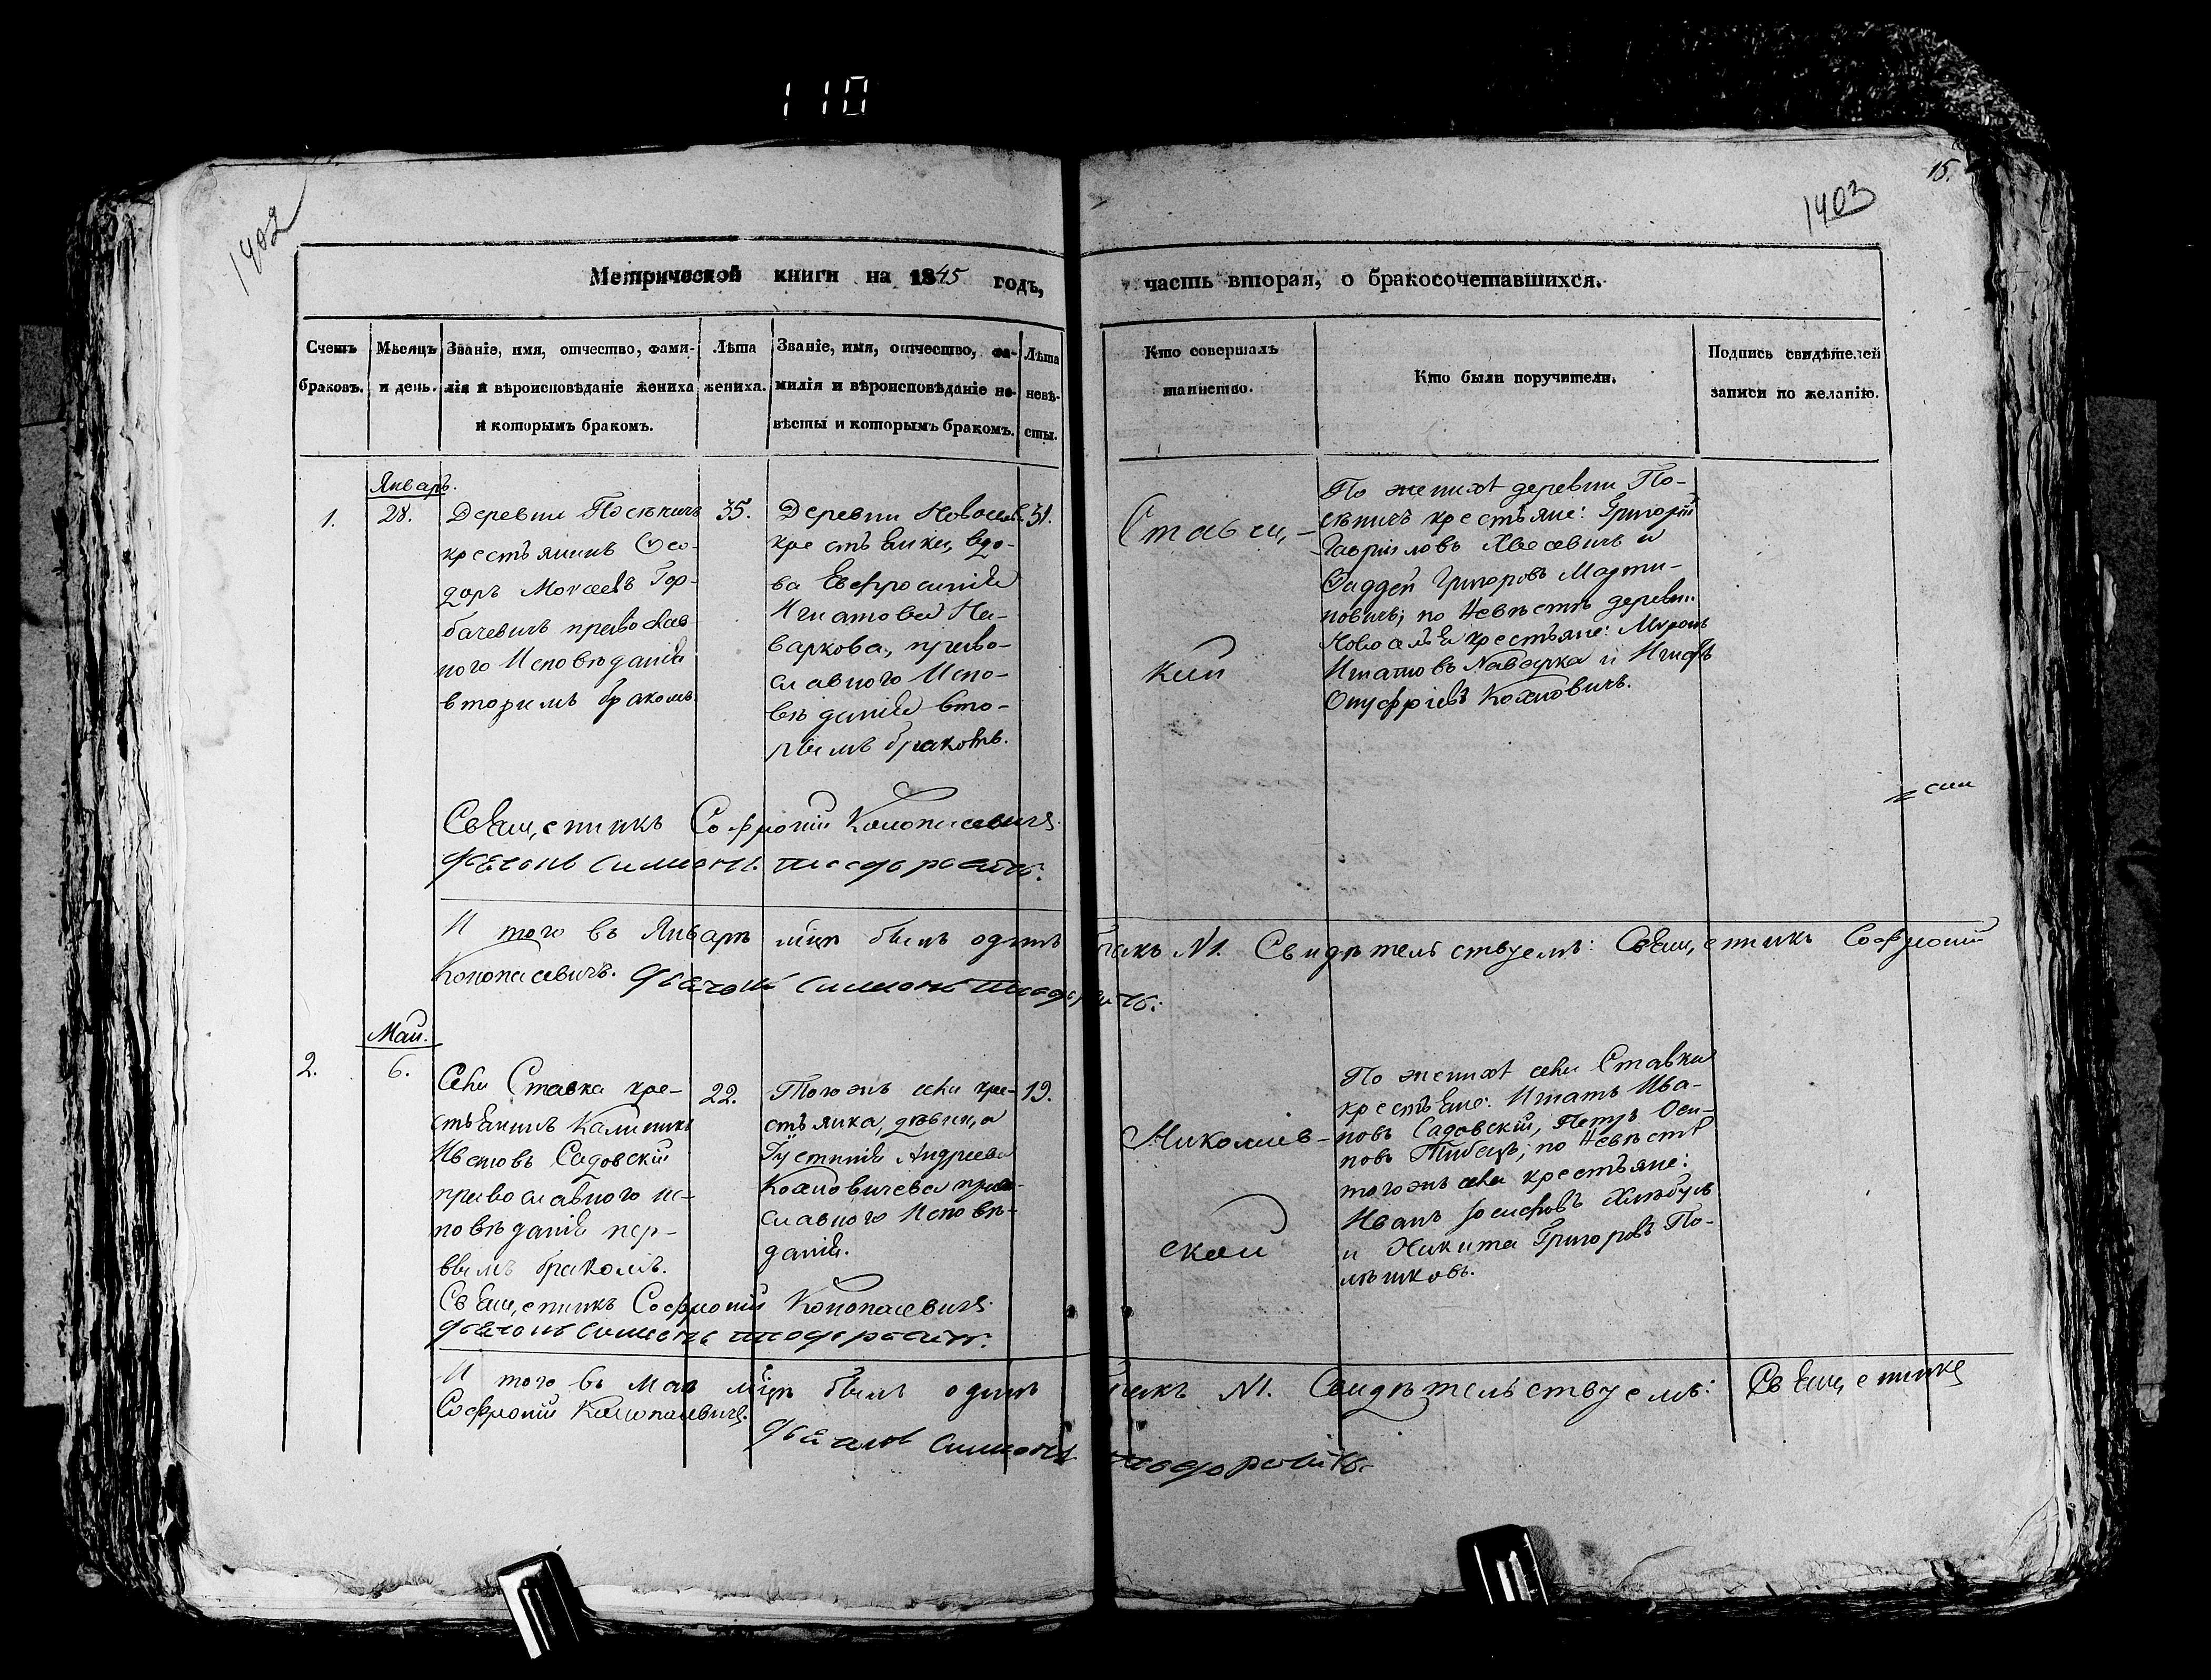 110
1402
1403
15.
Метрической книги на 1845 годъ, часть вторая, о бракосочетавшихся.
Счетъ
браковъ.
Мѣсяцъ
и день.
Званіе, имя, отчество, фами-
лія и вѣроисповѣданіе жениха
и которымъ бракомъ.
Лѣта
жениха.
Званіе, имя, отчество, фа-
милія и вѣроисповѣданіе не-
вѣсты и которымъ бракомъ.
Лѣта
невѣ-
сты.
Кто совершалъ
таинство.
Кто были поручители.
Подпись свидѣтелей
записи по желанію.
Январь.
1.
28.
Деревни Посѣничъ
крестьянинъ Ѳео-
доръ Моисеевъ Гор-
бачевичъ православ
ного Исповѣданія
вторымъ бракомъ
35.
Деревни Новоселе
крестьянка, вдо-
ва Евфросинія
Игнатова На-
варкова, право-
славного Испо-
вѣданія вто-
рымъ бракомъ.
31.
Ставец,-
кий
По женихѣ деревни По-
сѣничъ крестьяне: Григорій
Гавриловъ
Ѳаддей Григоровъ Марти-
новичъ; по Невѣстѣ деревни
крестьяне: Миронъ
Игнатовъ Наварка и
Онуфріевъ Кохновичъ.
Священникъ Софроній Конопасевичъ
Дьячокъ Симеонъ
И того въ Январѣ мцѣ былъ одинъ бракъ N1. Свидѣтельствуемъ: Священникъ Софроній
Конопасевичъ. Дьячокъ Симеонъ
Май.
2.
6.
Села Ставка кре-
стьянинъ Калинникъ
Ивановъ Садовскій
православного ис-
повѣданія пер-
вымъ бракомъ.
22.
Тогожъ села кре-
стьянка, дѣвица
Іустинія Андреева
Кохновичева право-
славного Исповѣ-
данія.
19.
Николаев-
ской
По женихѣ села Ставка
крестьяне: Игнатъ Ива-
новъ Садовскій, Петръ Оси-
повъ; по Невѣстѣ
тогожъ села крестьяне:
Иванъ Іосифовъ
и Никита Григоровъ По-
лѣшковъ.
Священникъ Софроній Конопасевичъ
Дьячокъ Симеонъ
И того въ Маѣ мцѣ былъ одинъ бракъ N1. Свидѣтельствуемъ: Священникъ
Софроній Конопасевичъ.
Дьячокъ Симеонъ